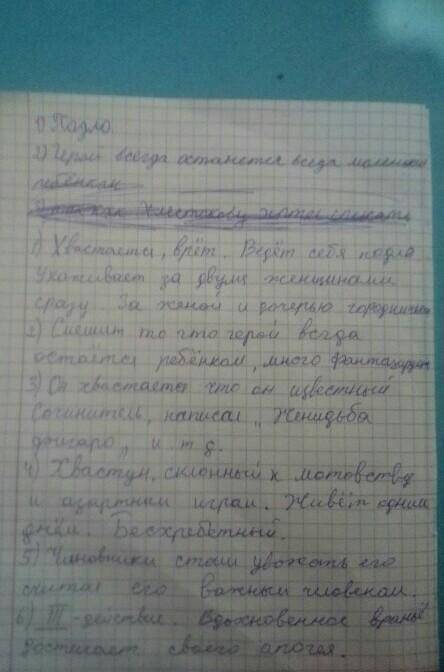 1) Подло.
2) Герой всегда останется всегда маленьким
ребёнком
Хлестакову
1) Хвастается, врёт. Ведёт себя подло
Ухаживает за двумя женщинами
сразу. За женой и дочерью городничего
2) Смешит то что герой всегда
остаётся ребёнком, много фантазирует
3) Он хвастается что он известный
Сочинитель, написал „Женидьба
фигаро„ и т д.
4) Хвастун, склонный к мотовству
и азартным играм. Живёт одним
днём. Бесхребетный.
5) Чиновники стали уважать его
считая его важным человеком.
6) III-действие. Вдохновенное враньё
достигает своего апогея.